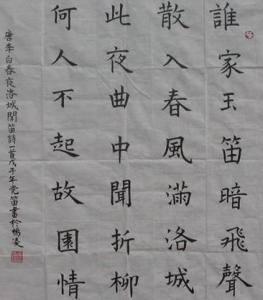 誰家玉笛暗飛聲
散入春風滿洛城
此夜曲中聞折柳
何人不起故園情
唐李白春夜洛城聞笛詩一首戊子年党笛書於楊凌